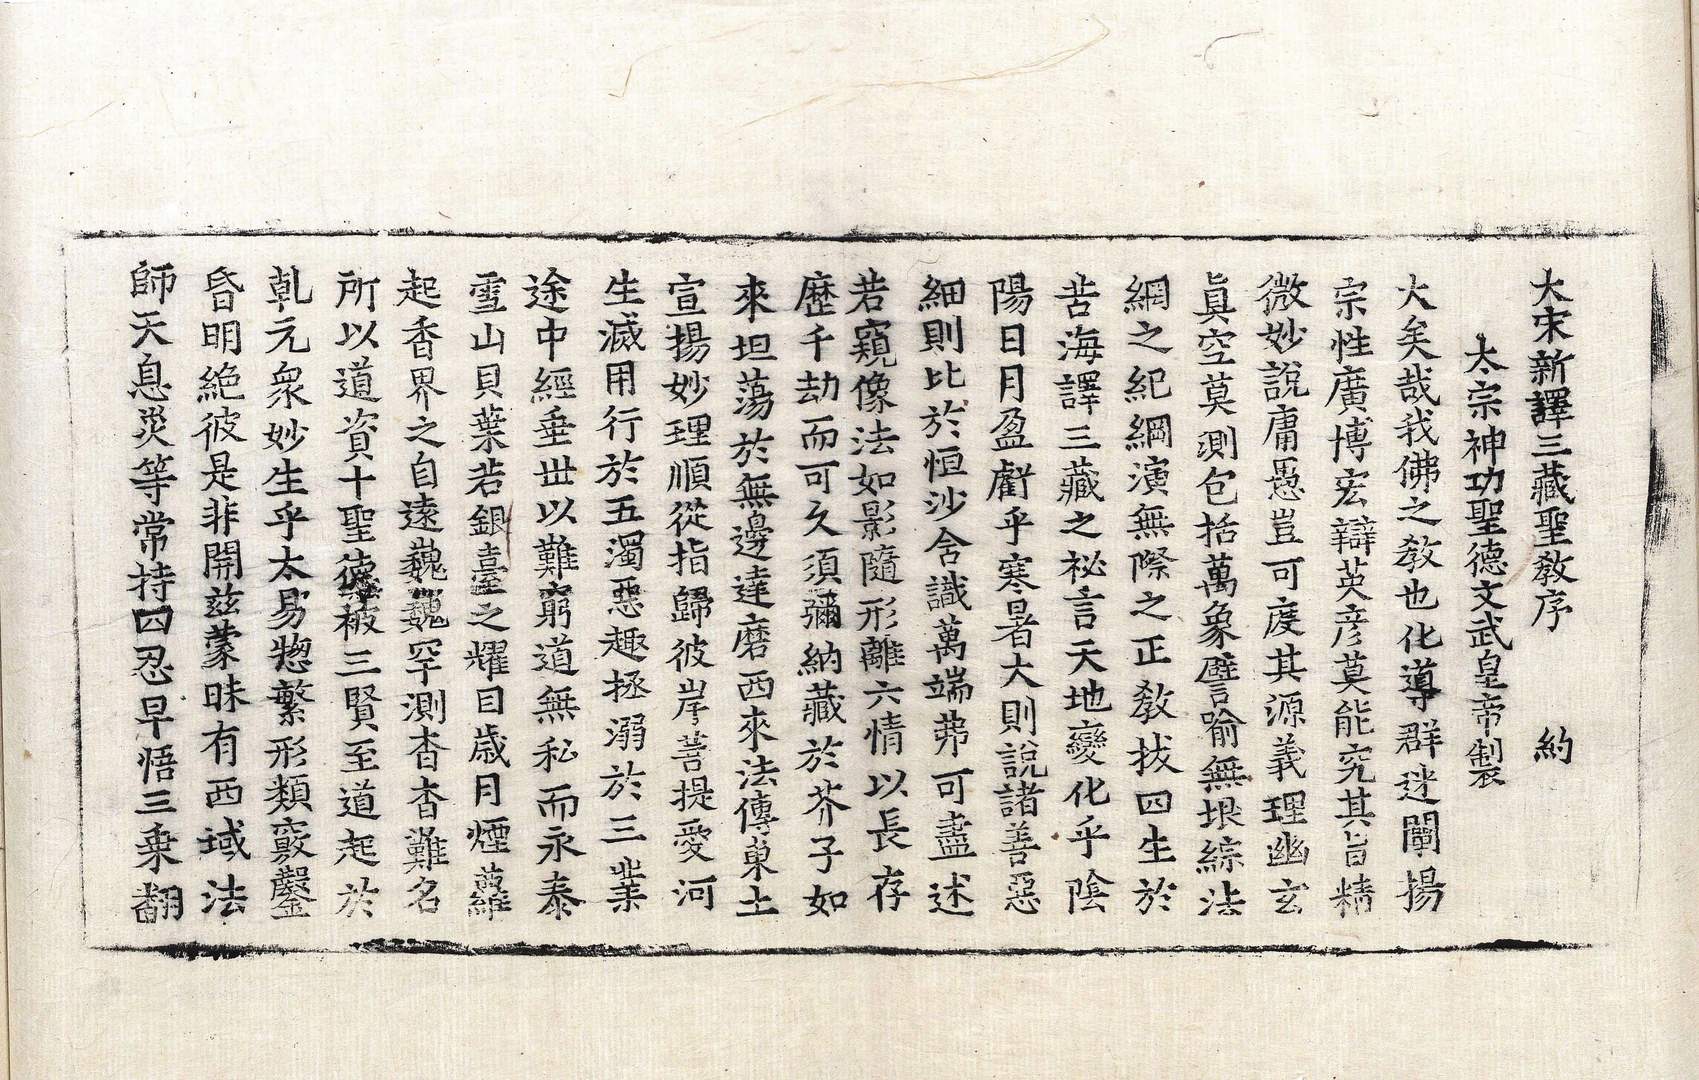 大宋新譯三藏聖教序　約
太宗神功聖德文武皇帝製
大矣哉我佛之教也化導群迷闡揚
宗性廣博宏辯英彦莫能究其旨精
微妙說庸愚豈可度其源義理幽玄
真空莫測包括萬象譬喻無垠綜法
網之紀綱演無際之正教拔四生於
苦海譯三藏之祕言天地變化乎陰
陽日月盈虧乎寒暑大則說諸善惡
細則比於恒沙含識萬端弗可盡述
若窺像法如影隨形離六情以長存
歷千劫而可久須彌納藏於芥子如
來坦蕩於無邊達磨西來法傳東土
宣揚妙理順從指歸彼岸菩提愛河
生滅用行於五濁惡趣拯溺於三業
途中經垂世以難窮道無私而永泰
雪山貝葉若銀臺之耀目歳月煙蘿
起香界之自遠巍巍罕測杳杳難名
所以道資十聖德被三賢至道起於
乹元衆妙生乎太易惣繁形類竅鑿
昏明絶彼是非開兹蒙昧有西域法
師天息災等常持四忍早悟三乘翻